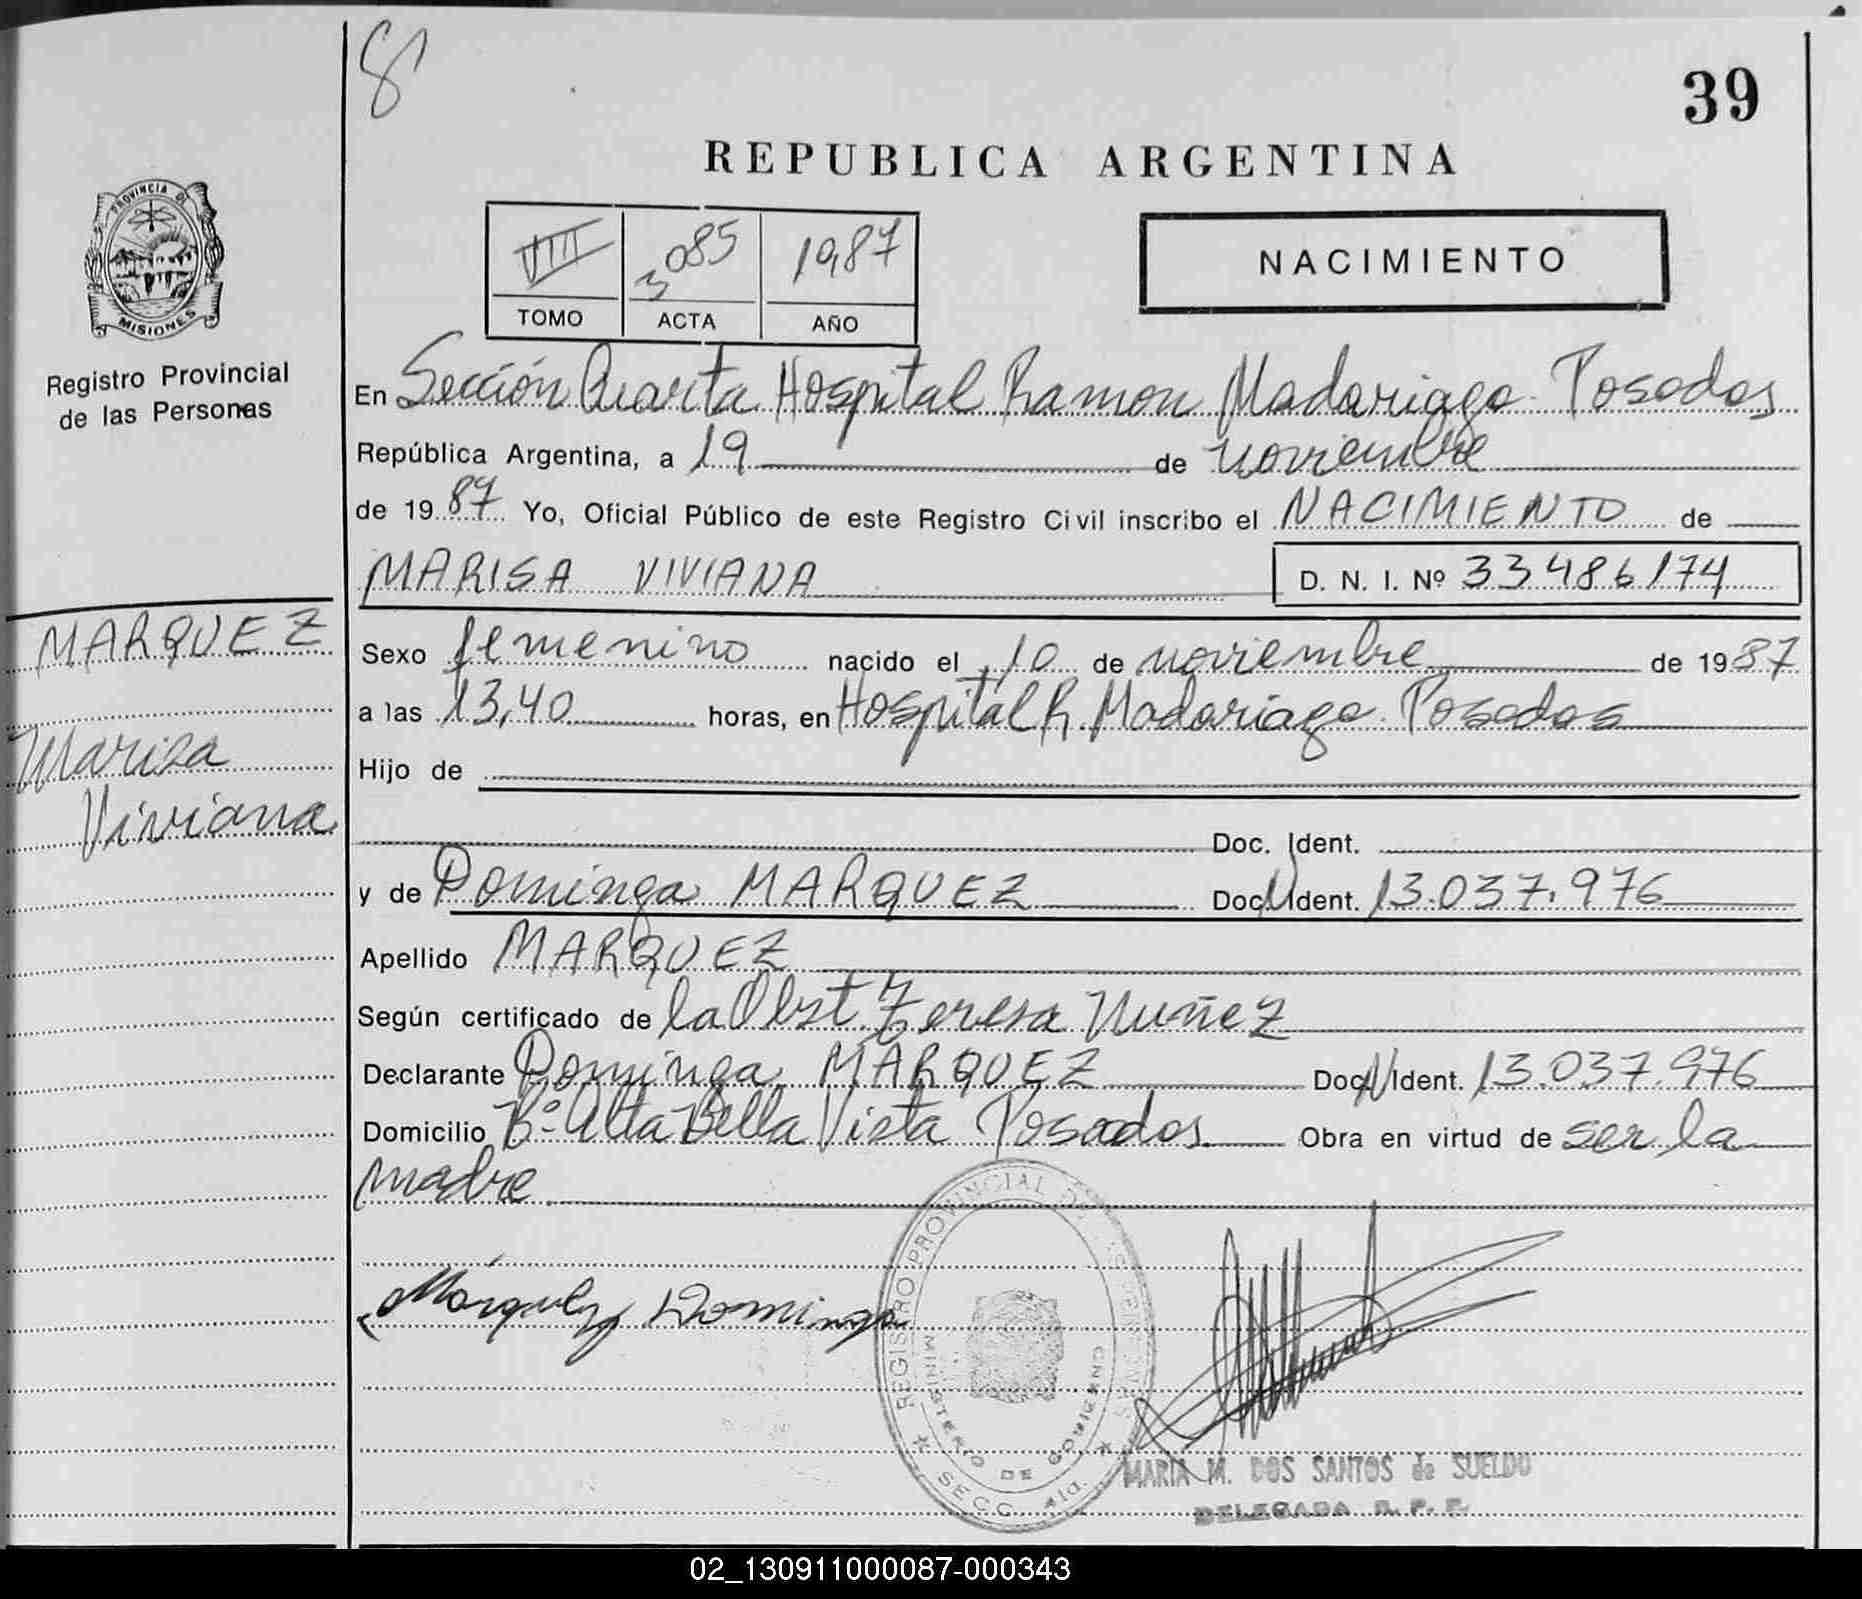 8
39
REPUBLICA ARGENTINA
PROVINCIA DE
MISIONES
Registro Provincial
de las Personas
VIII 3085 1987
TOMO ACTA AÑO
NACIMIENTO
En Sección Cuarta Hospital Ramon Madariaga Posadas
República Argentina, a 19 de noviembre
de 1987 Yo, Oficial Público de este Registro Civil inscribo el NACIMIENTO de
MARISA VIVIANA D. N. I. Nº 33486174
MARQUEZ
Marisa
Viviana
Sexo femenino nacido el 10 de noviembre de 1987
a las 13,40 horas, en Hospital R. Madariaga Posadas
Hijo de
Doc. Ident.
y de Dominga MARQUEZ Doc. Ident. 13.037.976
Apellido MARQUEZ
Según certificado de la Obst Teresa Nuñez
Declarante Dominga MARQUEZ Doc. Ident. 13.037.976
Domicilio Bº Alta Bella Vista Posadas Obra en virtud de ser la
madre
Márquez Dominga
REGISTRO PROVINCIAL DE
MINISTERIO DE GOBIERNO
SECC. 4ta.
MARIA M. DOS SANTOS de SUELDO
DELEGADA R. P. P.
02_130911000087-000343